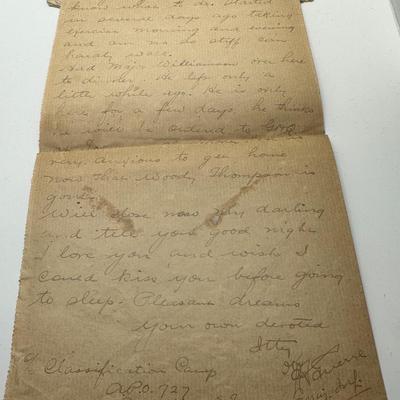 know what to do. Started
in several days ago taking
exercise morning and evening
and am so stiff can
hardly walk.
Had Major Williamson over here
to dinner. He left only a
little while ago. He is only
here for a few days he thinks
he will be ordered to
very anxious to get home
now that Woody Thompson is
gone.
Will close now my darling
and tell you good night
I love you and wish I
could kiss you before going
to sleep. Pleasant dreams
Your own devoted
Classification Camp
A.P.O. 727